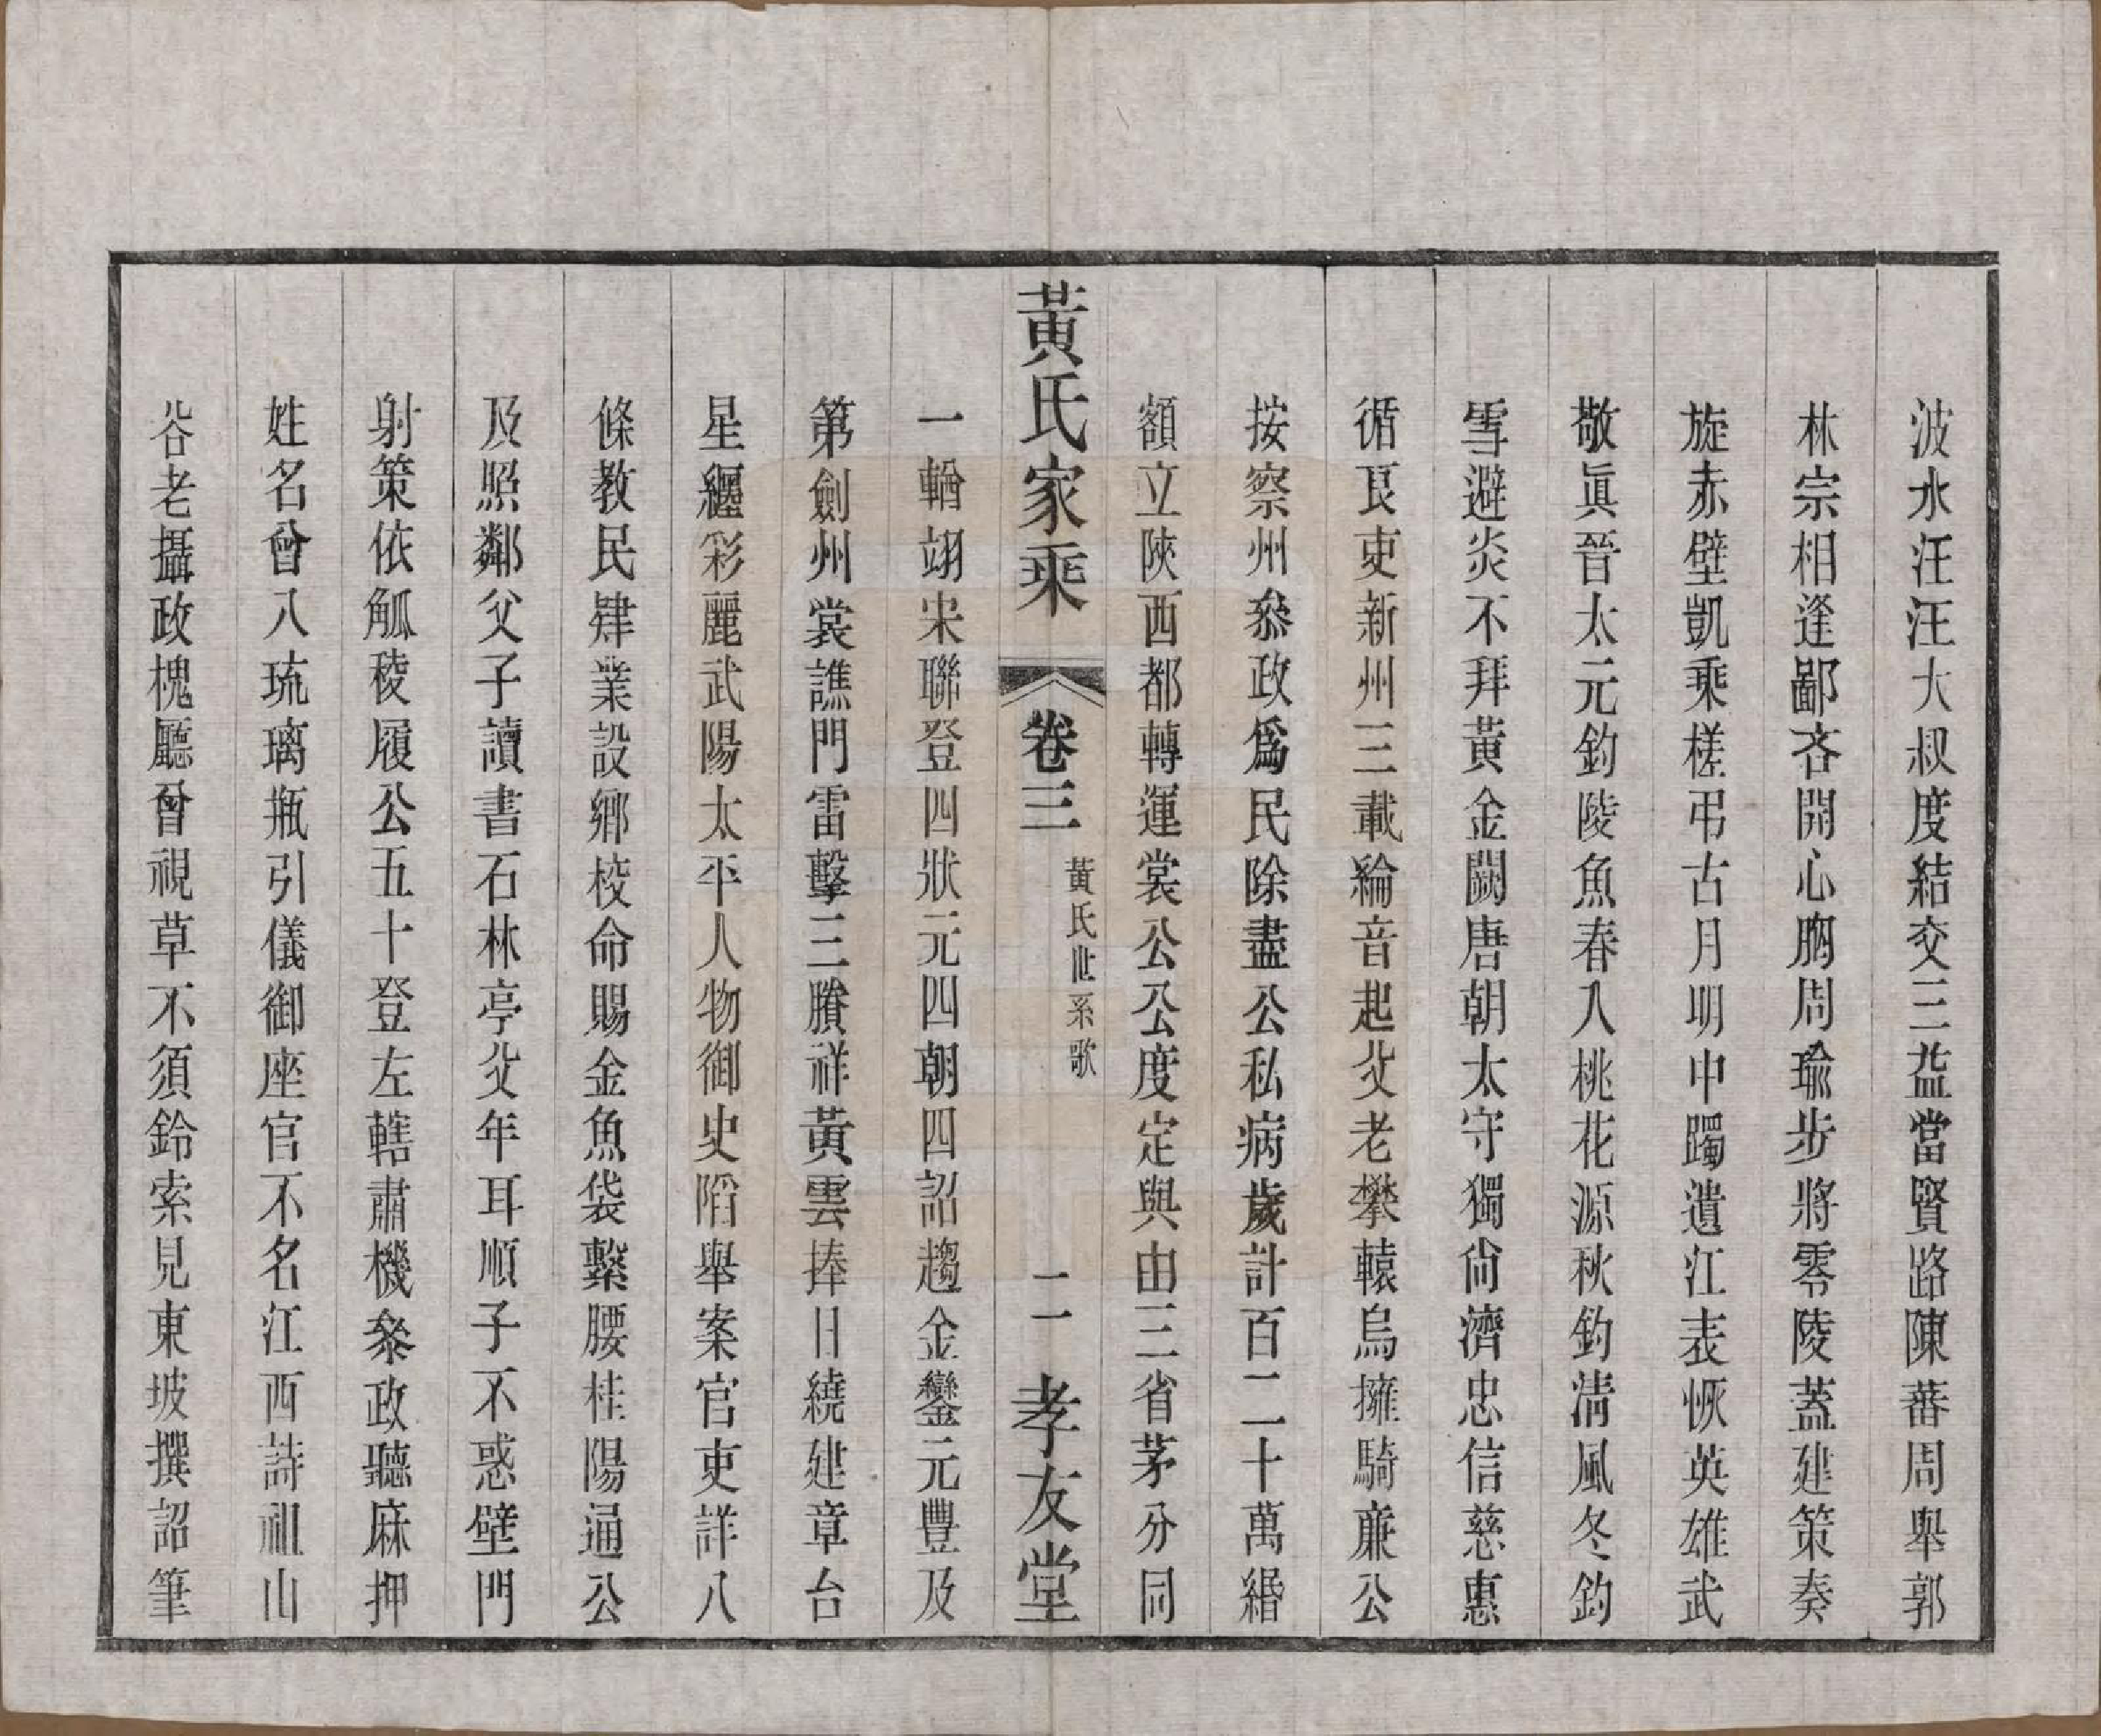 波水汪汪大叔度結交三益當賢路陳蕃周舉郭
林宗相逢鄙吝開心胸周瑜步將零陵蓋建策奏
旋赤壁凱乘槎弔古月明中躅遺江表恢英雄武
敬眞晉太元釣陵魚春入桃花源秋釣淸風冬釣
雪避炎不拜黃金闕唐朝太守獨尙濟忠信慈惠
循良吏新州三載綸音起父老攀轅烏擁騎亷公
按察州叅政爲民除盡公私病歲計百二十萬緡
額立陝西都轉運裳公公度定與由三省茅分同
黃氏家乘
卷三
黃氏世系歌
二
孝友堂
一輶翊宋聯登四狀元四朝四詔趨金鑾元豐及
第劍州裳譙門雷擊三賸祥黃雲捧日繞建章台
星纒彩麗武陽太平人物御史䧟舉案官吏詳八
條教民肄業設鄉校命賜金魚袋繫腰桂陽通公
及照鄰父子讀書石林亭父年耳順子不惑壁門
射策依觚稜履公五十登左轄肅機叅政聽麻押
姓名曾入琉璃瓶引儀御座官不名江西詩祖山
谷老攝政槐廳曾視草不須鈴索見東坡撰詔筆